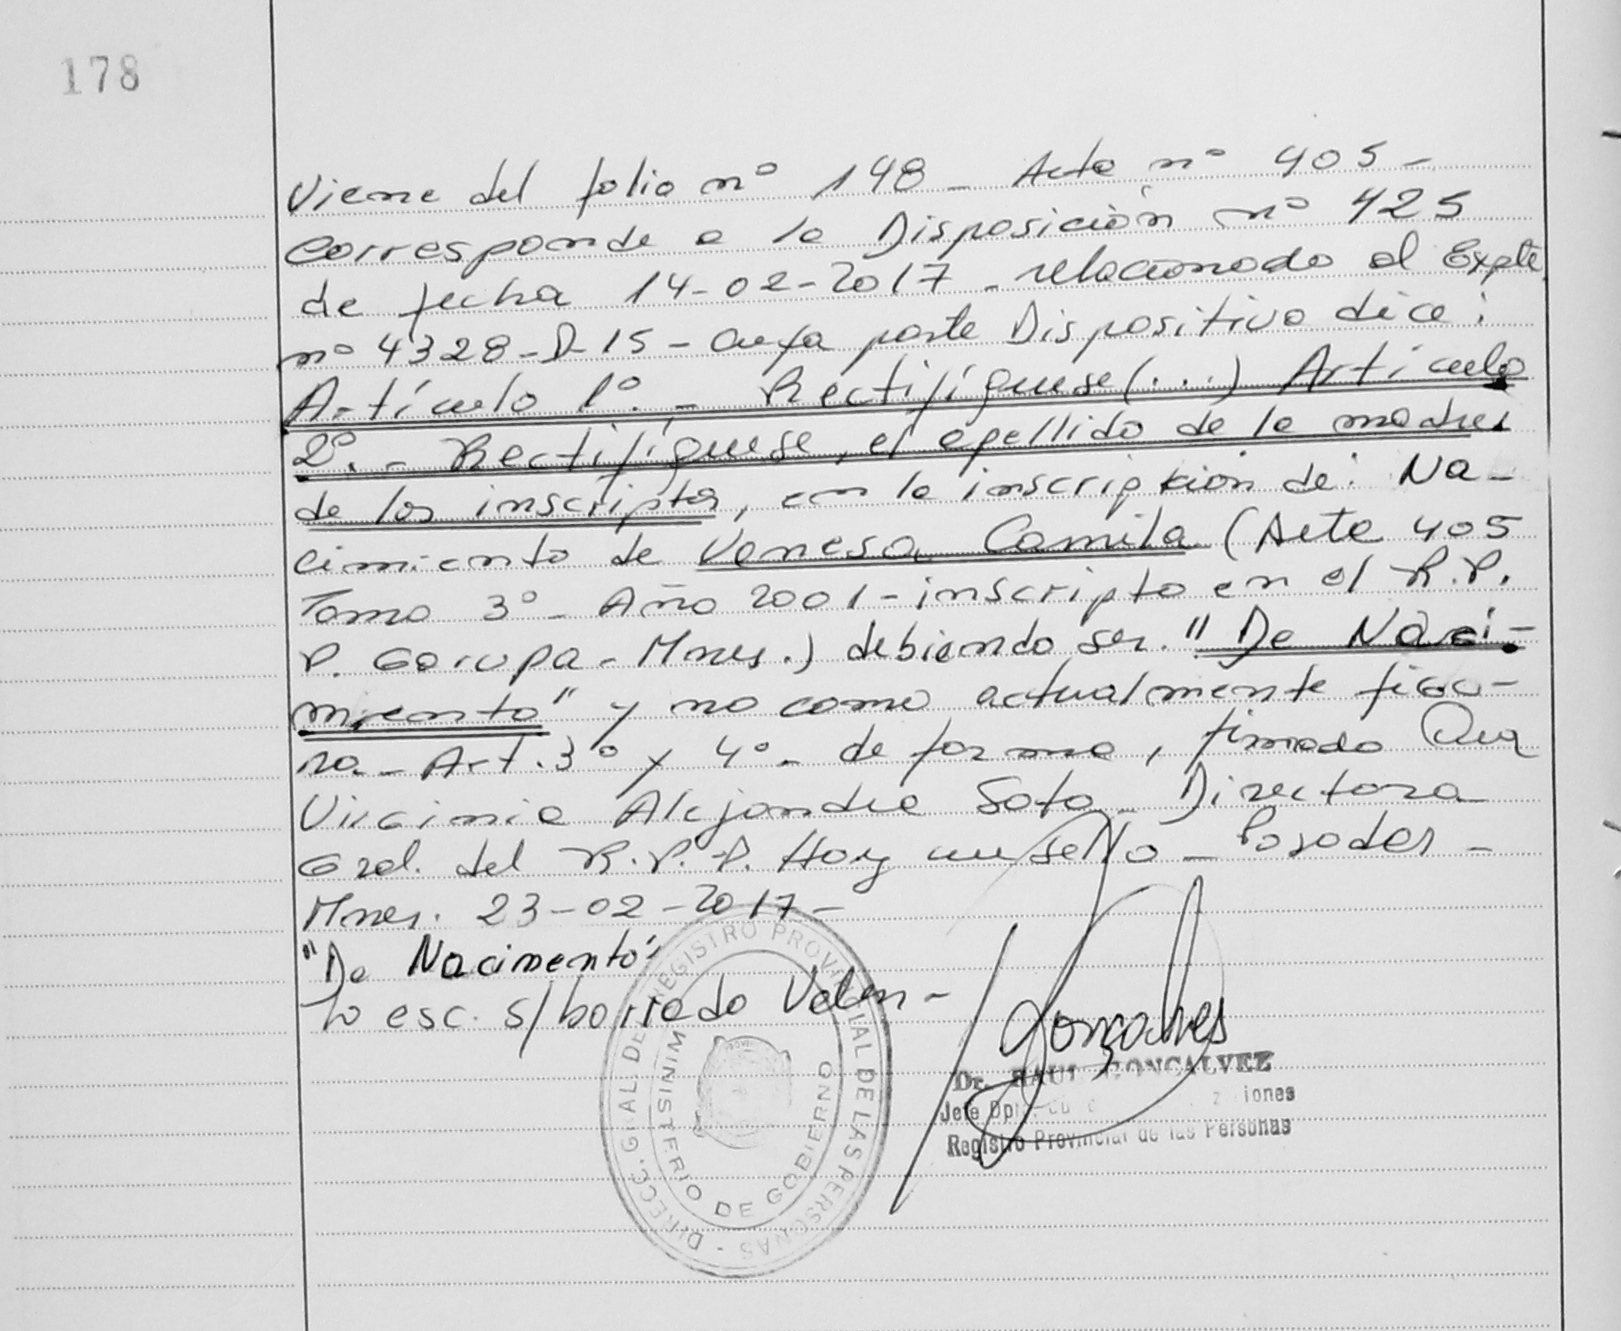 178
Viene del folio nº 148 - Acta nº 405 -
Corresponde a la Disposición nº 425
de fecha 14-02-2017 - relacionado al Expte
nº 4328-D-15 - cuya parte Dispositiva dice:
Artículo 1º. - Rectifíquese (...) Artículo
2º. - Rectifíquese, el apellido de la madre
de los inscriptos, en la inscripción de: Na-
cimiento de Vanesa Camila (Acta 405
Tomo 3º - Año 2001 - inscripto en el R.P.
P. Garupa - Mnes.) debiendo ser. "De Naci-
mento" y no como actualmente figu-
ra - Art. 3º y 4º - de forma, firmado Dra
Virginia Alejandra Soto - Directora
Gral. del R.P.P. Hoy un sello - Posadas -
Mnes. 23-02-2017 -
"De Nacimento"
Lo esc. s/borrado Valen -
DIRECC. GRAL. DEL REGISTRO PROVINCIAL DE LAS PERSONAS -
MINISTERIO DE GOBIERNO
Gonçalves
Dr. RAUL GONCALVEZ
Jefe Dpto.
Registro Provincial de las Personas